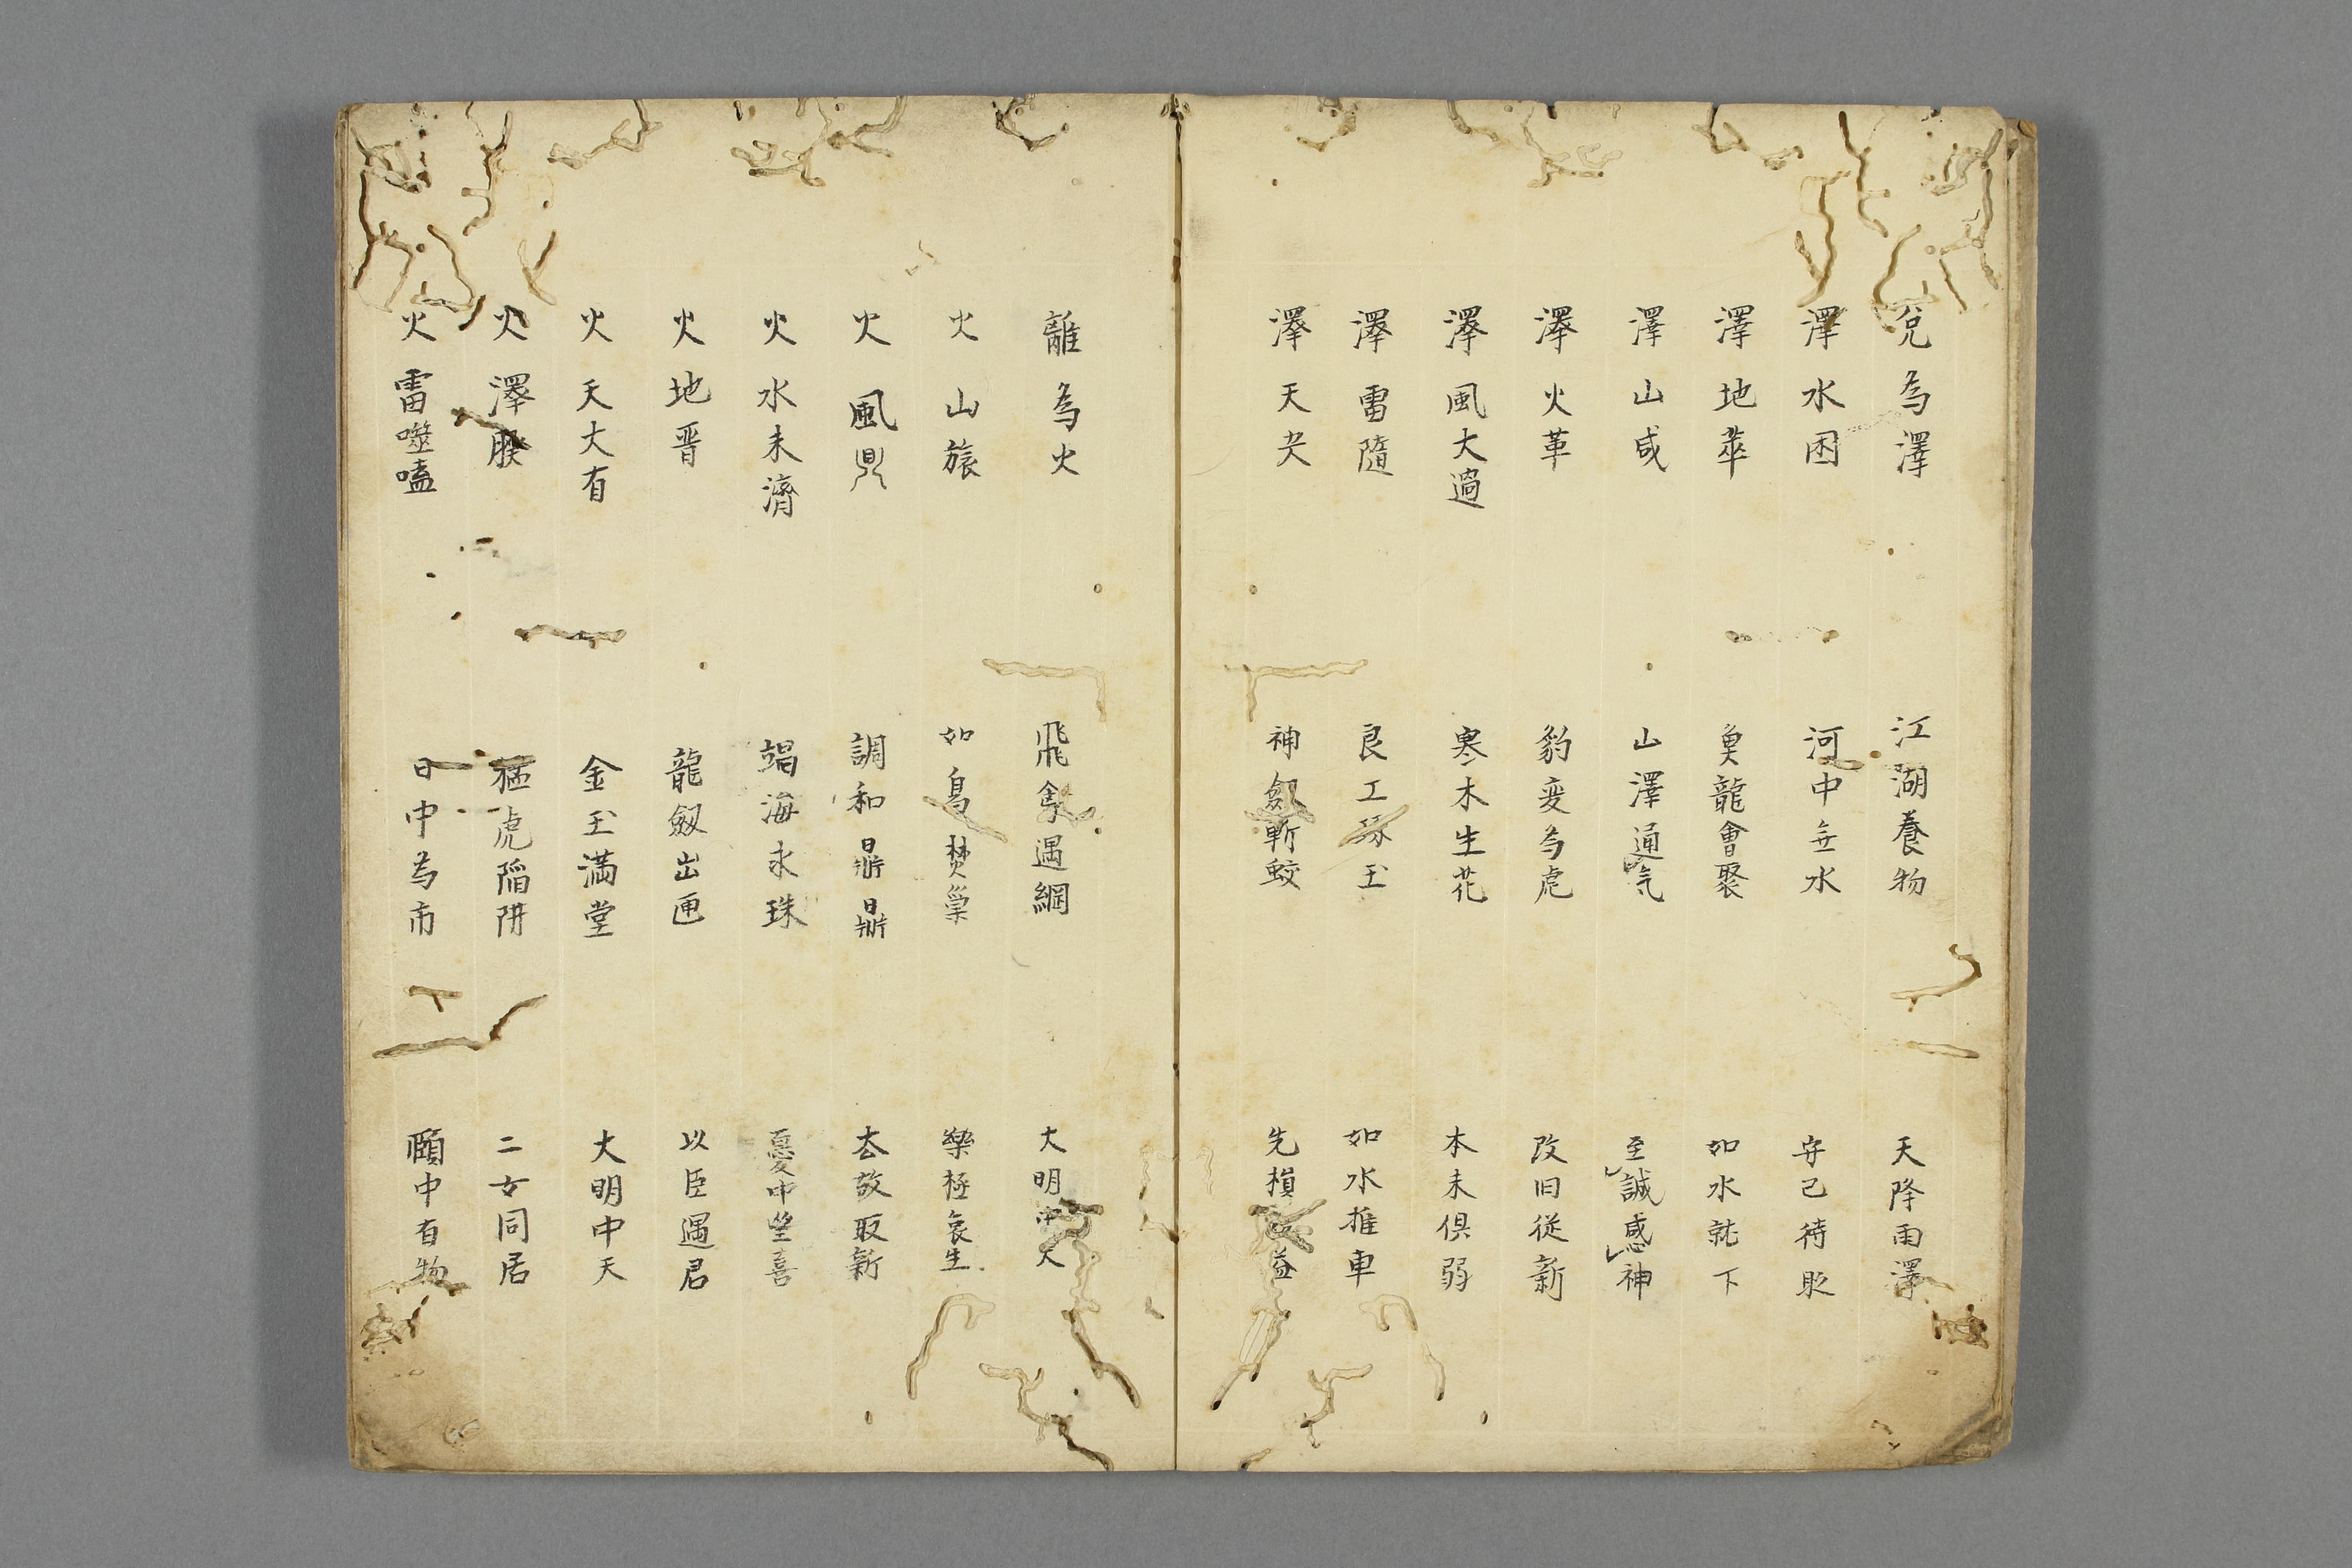 兌為澤　江湖養物　天降雨澤
澤水困　河中無水　守己待
澤地萃　魚龍會聚　如水就下
澤山咸　山澤通気　至誠感神
澤火革　豹変為虎　改旧從新
澤風大過　寒木生花　本末俱弱
澤雷隨　良工琢玉　如水推車
澤天夬　神劔斬蛟　先損益
離為火　飛禽遇網　大明天
火山旅　如鳥焚巢　樂極哀生
火風鼎　調和鼎鼎　去故取新
火水未濟　竭海求珠　憂中望喜
火地晋　龍劔出匣　以臣遇君
火天大有　金玉満堂　大明中天
火澤睽　猛虎陷阱　二女同居
火雷噬嗑　日中為市　頤中有物